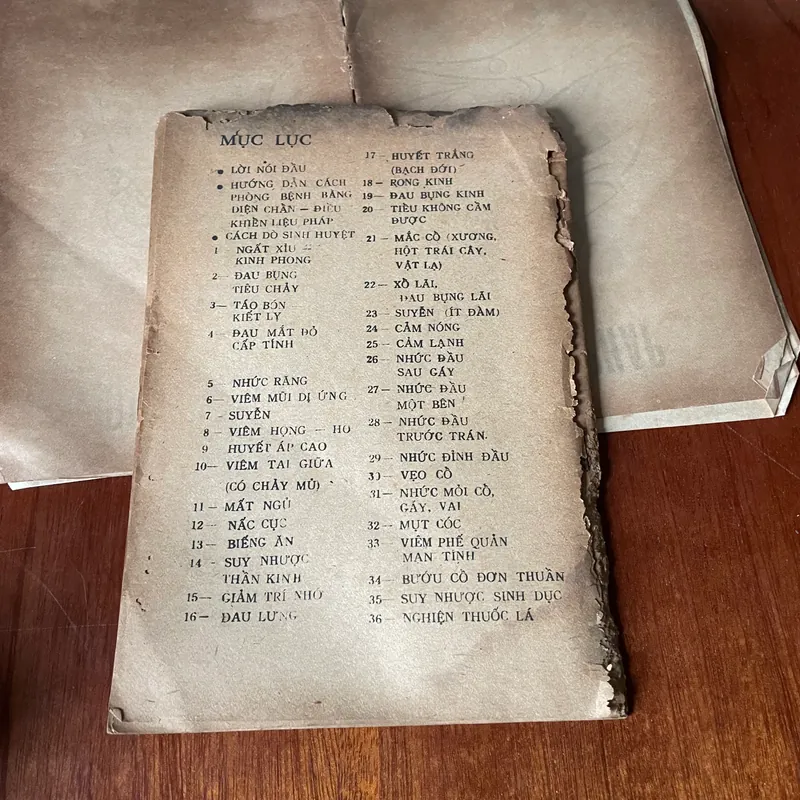 MỤC LỤC
• LỜI NÓI ĐẦU
• HƯỚNG DẪN CÁCH
PHÒNG BỆNH BẰNG
DIỆN CHẨN — ĐIỀU
KHIỂN LIỆU PHÁP
• CÁCH DÒ SINH HUYỆT
1 NGẤT XỈU —
KINH PHONG
2— ĐAU BỤNG
TIÊU CHẢY
3— TÁO BÓN
KIẾT LỴ
4— ĐAU MẮT ĐỎ
CẤP TÍNH
5 NHỨC RĂNG
6— VIÊM MŨI DỊ ỨNG
7 - SUYỄN
8 — VIÊM HỌNG — HO
9 HUYẾT ÁP CAO
10— VIÊM TAI GIỮA
(CÓ CHẢY MỦ)
11— MẤT NGỦ
12— NẤC CỤC
13— BIẾNG ĂN
14 - SUY NHƯỢC
THẦN KINH
15— GIẢM TRÍ NHỚ
16— ĐAU LƯNG
17— HUYẾT TRẮNG
(BẠCH ĐỚI)
18— RONG KINH
19— ĐAU BỤNG KINH
20— TIỂU KHÔNG CẦM
ĐƯỢC
21— MẮC CỔ (XƯƠNG,
HỘT TRÁI CÂY,
VẬT LẠ)
22— XỔ LÃI,
ĐAU BỤNG LÃI
23— SUYỄN (ÍT ĐÀM)
24— CẢM NÓNG
25— CẢM LẠNH
26— NHỨC ĐẦU
SAU GÁY
27— NHỨC ĐẦU
MỘT BÊN
28— NHỨC ĐẦU
TRƯỚC TRÁN
29— NHỨC ĐỈNH ĐẦU
30— VẸO CỔ
31— NHỨC MỎI CỔ,
GÁY, VAI
32— MỤT CÓC
33— VIÊM PHẾ QUẢN
MAN TÍNH
34— BƯỚU CỔ ĐƠN THUẦN
35— SUY NHƯỢC SINH DỤC
36— NGHIỆN THUỐC LÁ